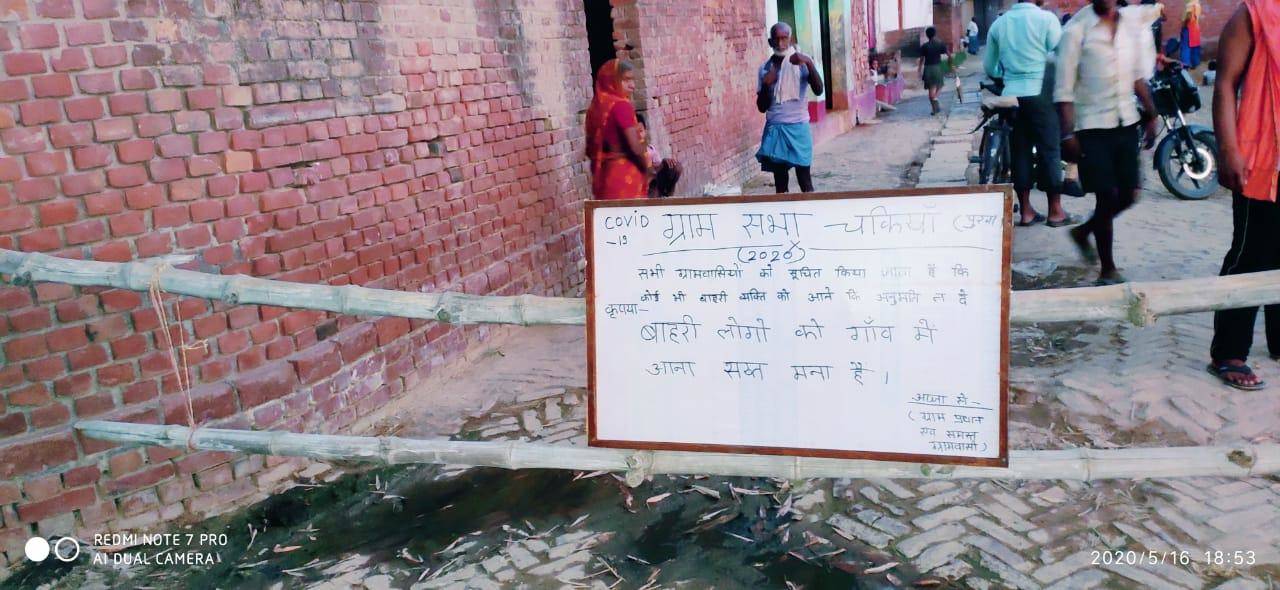 COVID
-19
ग्राम सभा चकियाँ (पुरवा)
(2020)
सभी ग्रामवासियों को सूचित किया जाता है कि
कोई भी बाहरी व्यक्ति को आने कि अनुमति न दे
कृपया-
बाहरी लोगो को गाँव में
आना सख्त मना है।
अज्ञा से-
(ग्राम प्रधान
एवं समस्त
ग्रामवासी)
REDMI NOTE 7 PRO
AI DUAL CAMERA
2020/5/16 18:53